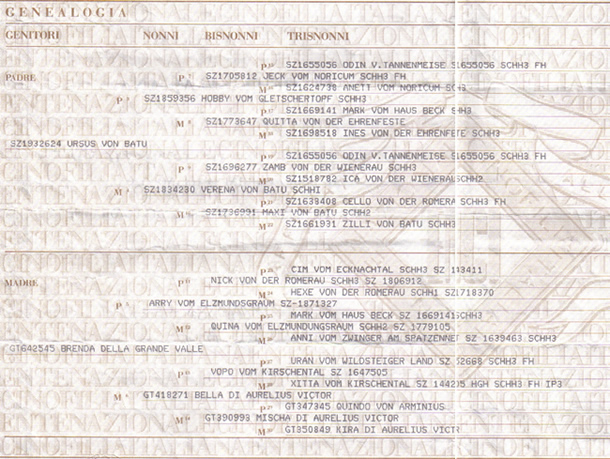 GENEALOGIA
GENITORI NONNI BISNONNI TRISNONNI
P SZ1655056 ODIN V.TANNENMEISE SZ1655056 SCHH3 FH
PADRE P SZ1705812 JECK VOM NORICUM SCHH3 FH
M SZ1624738 ANETT VOM NORICUM SCH3
P SZ1859356 HOBBY VOM GLETSCHERTOPF SCHH3
P SZ1669141 MARK VOM HAUS BECK SHH3
M SZ1773647 QUITTA VON DER EHRENFESTE
M SZ1698518 INES VON DER EHRENFESTE SCHH3
SZ1932624 URSUS VON BATU
P SZ1655056 ODIN V.TANNENMEISE SZ1655056 SCHH3 FH
P SZ1696277 ZAMB VON DER WIENERAU SCHH3
M SZ1518782 ICA VON DER WIENERAUSCHH2
M SZ1834230 VERENA VON BATU SCHHI
P SZ1638408 CELLO VON DER ROMERA SCHH3 FH
M SZ1736991 MAXI VON BATU SCHH2
M SZ1661931 ZILLI VON BATU SCHH3
P CIM VOM ECKNACHTAL SCHH3 SZ
MADRE P NICK VON DER ROMERAU SCHH3 SZ 1806912
M HEXE VON DER ROMERAU SCHH1 SZ1718370
P ARRY VOM ELZMUNDSGRAUM SZ-1871327
P MARK VOM HAUS BECK SZ 1669141SCHH3
M QUINA VOM ELZMUNDUNGSRAUM SCHH2 SZ 1779105
M ANNI VOM ZWINGER AM SPATZENNET SZ 1639463 SCHH3
GT642545 BRENDA DELLA GRANDE VALLE
P URAN VOM WILDSTEIGER LAND SZ SCHH3 FH
P VOPO VOM KIRSCHENTAL SZ 1647505
M XITTA VOM KIRSCHENTAL SZ HGH SCHH3 FH IP3
M GT418271 BELLA DI AURELIUS VICTOR
P GT347345 QUINDO VON ARMINIUS
M GT390993 MISCHA DI AURELIUS VICTOR
M GT350849 KIRA DI AURELIUS VICTR